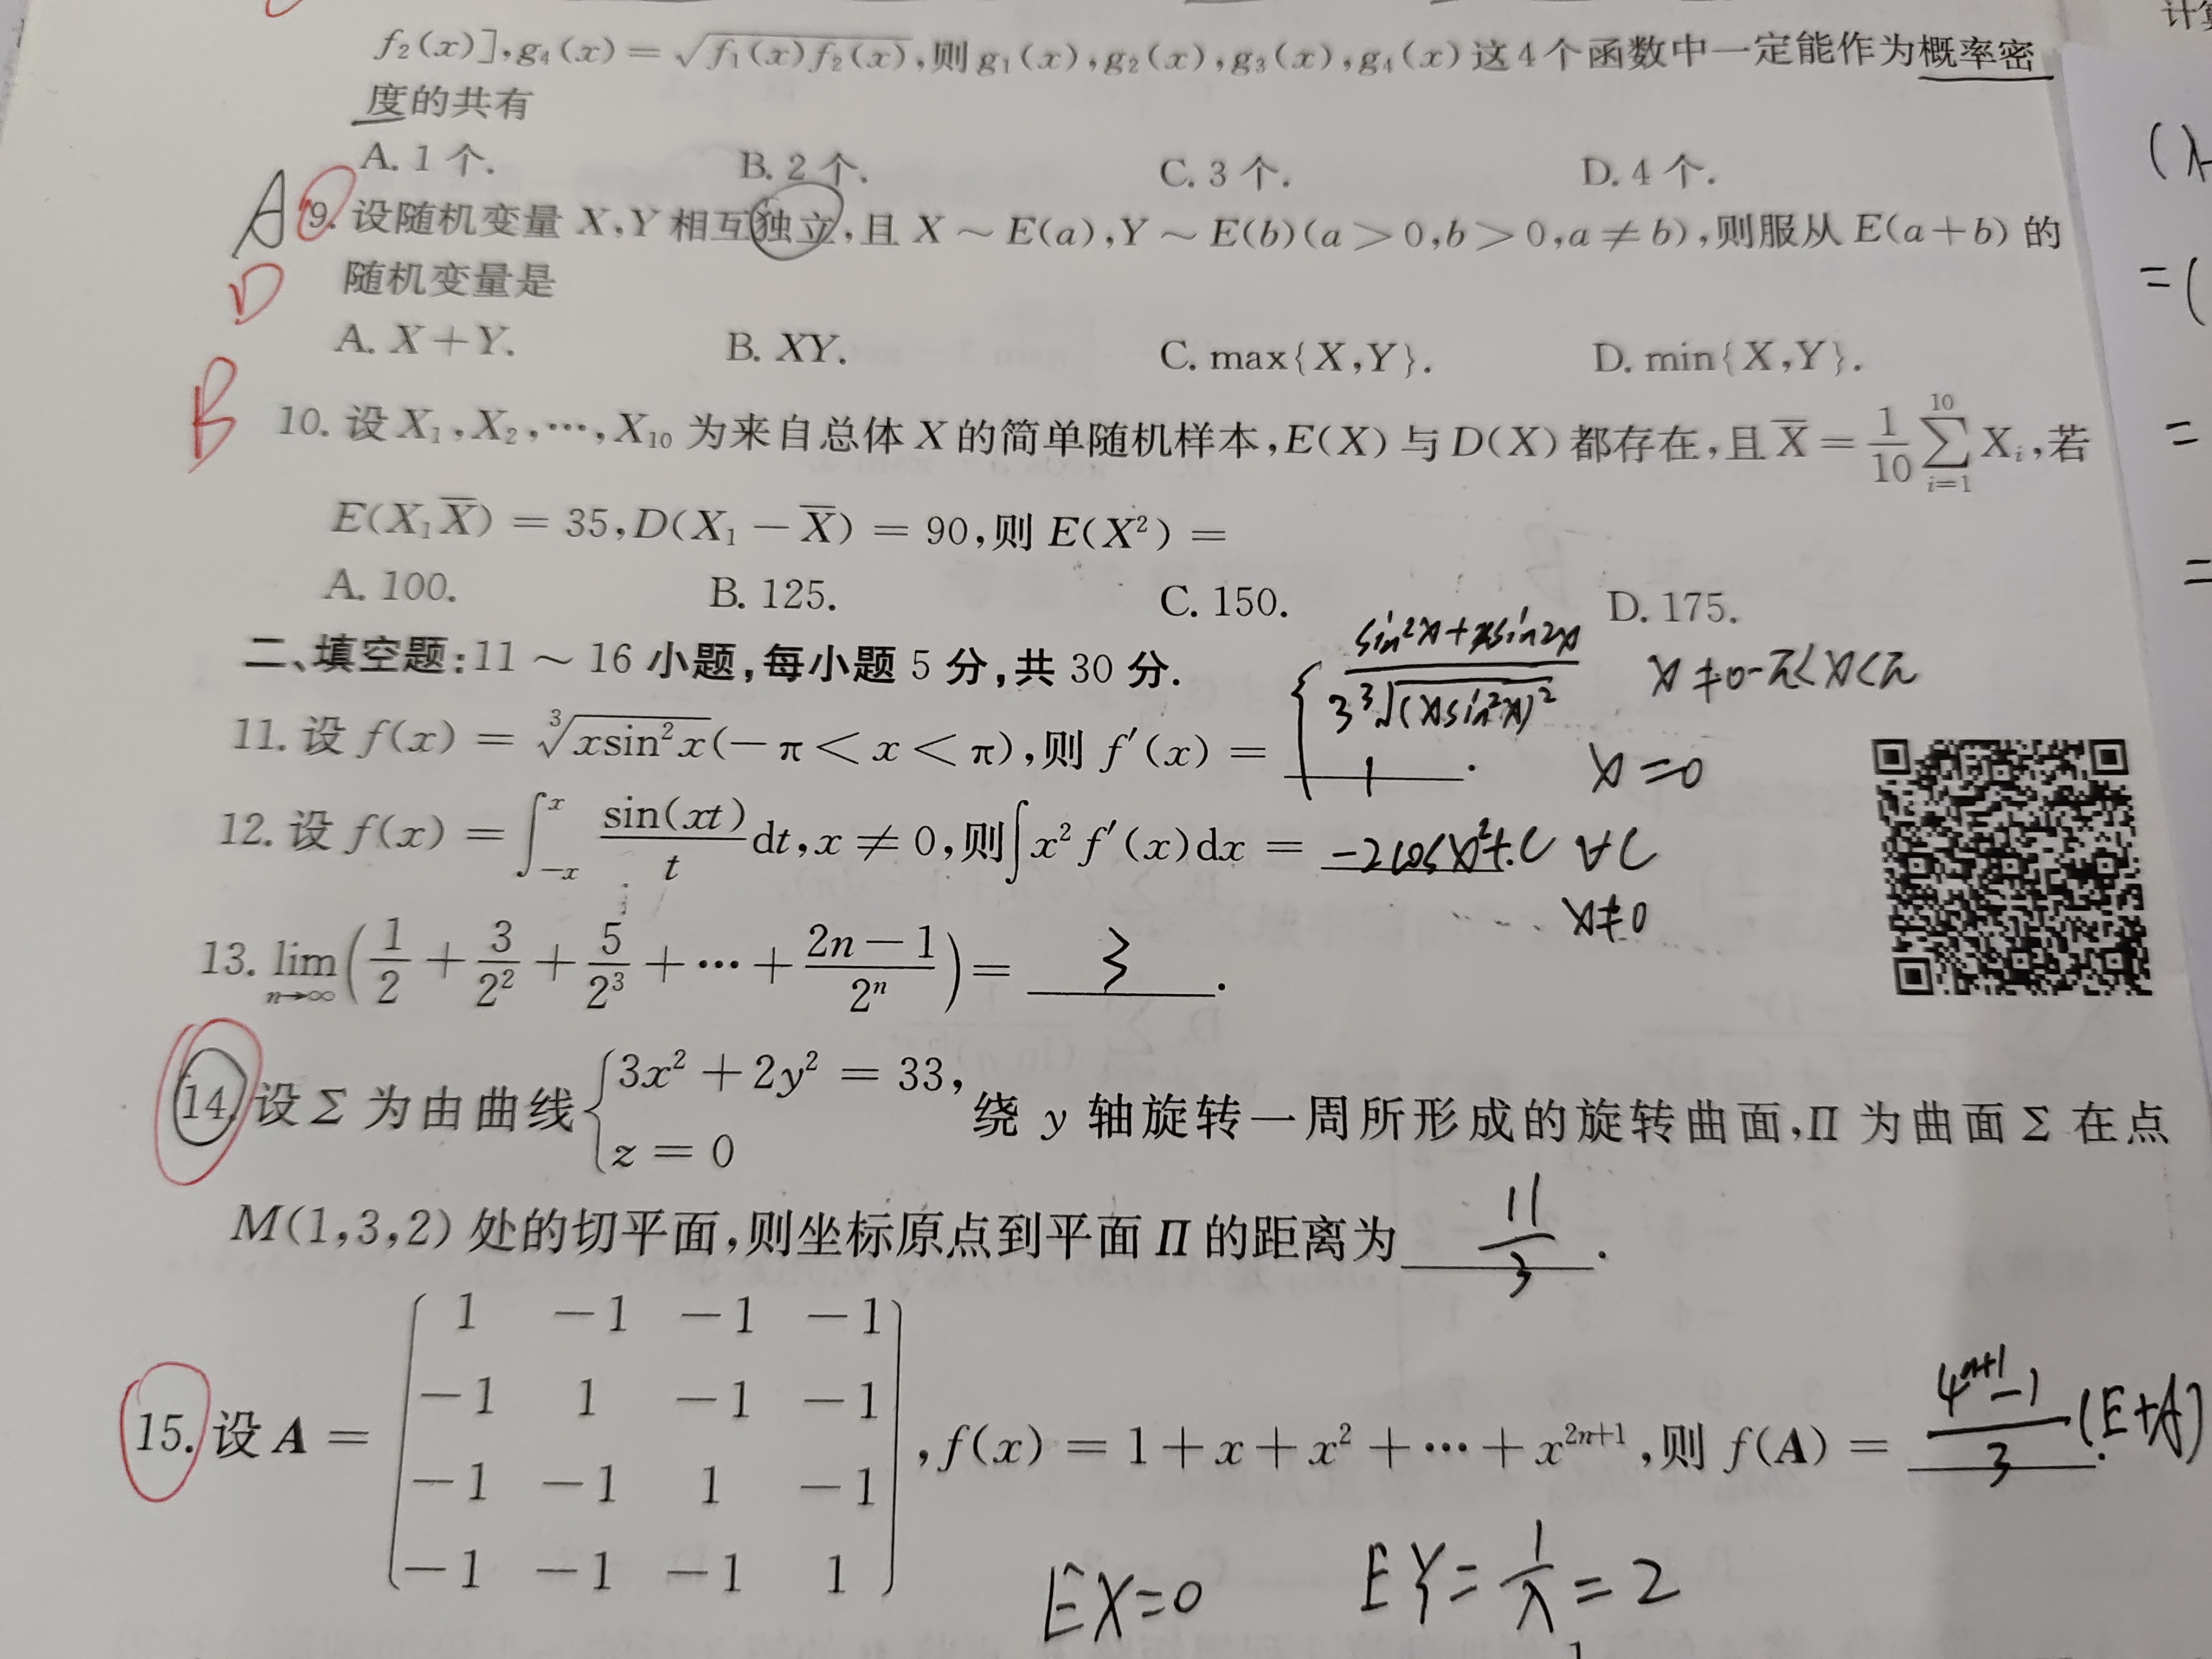 f₂(x)],g₄(x)=√(f₁(x)f₂(x)),则g₁(x),g₂(x),g₃(x),g₄(x)这4个函数中一定能作为概率密
度的共有
A. 1 个.  B. 2 个.  C. 3 个.  D. 4 个.
A 9. 设随机变量 X,Y 相互独立,且 X ~ E(a),Y ~ E(b)(a>0,b>0,a≠b),则服从 E(a+b) 的
D 随机变量是
A. X+Y.  B. XY.  C. max{X,Y}.  D. min{X,Y}.
B 10. 设 X₁,X₂,⋯,X₁₀ 为来自总体 X 的简单随机样本,E(X) 与 D(X) 都存在,且 X̄ = 1/10 ∑_{i=1}^{10} Xᵢ,若
E(X₁X̄) = 35,D(X₁−X̄) = 90,则 E(X²) =
A. 100.  B. 125.  C. 150.  D. 175.
二、填空题:11 ~ 16 小题,每小题 5 分,共 30 分.
11. 设 f(x) = ∛(xsin²x)(−π<x<π),则 f′(x) = { (sin²x+xsin2x)/(3∛(xsin²x)²) x≠0 −π<x<π
1 . x=0
12. 设 f(x) = ∫_{−x}^{x} sin(xt)/t dt,x≠0,则∫x²f′(x)dx = −2cosx²+C ∀C
x≠0
13. lim_{n→∞}(1/2 + 3/2² + 5/2³ + ⋯ + (2n−1)/2ⁿ) = 3 .
14. 设 Σ 为由曲线 { 3x²+2y² = 33, z = 0 绕 y 轴旋转一周所形成的旋转曲面,Π 为曲面 Σ 在点
M(1,3,2) 处的切平面,则坐标原点到平面 Π 的距离为 11/3 .
15. 设 A = ( 1 −1 −1 −1
−1 1 −1 −1
−1 −1 1 −1
−1 −1 −1 1 ) ,f(x) = 1+x+x²+⋯+x²ⁿ⁺¹,则 f(A) = (4ⁿ⁺¹−1)/3 (E+A) .
EX=0  EY=1/λ=2
计算
(λ-
=(
=
=